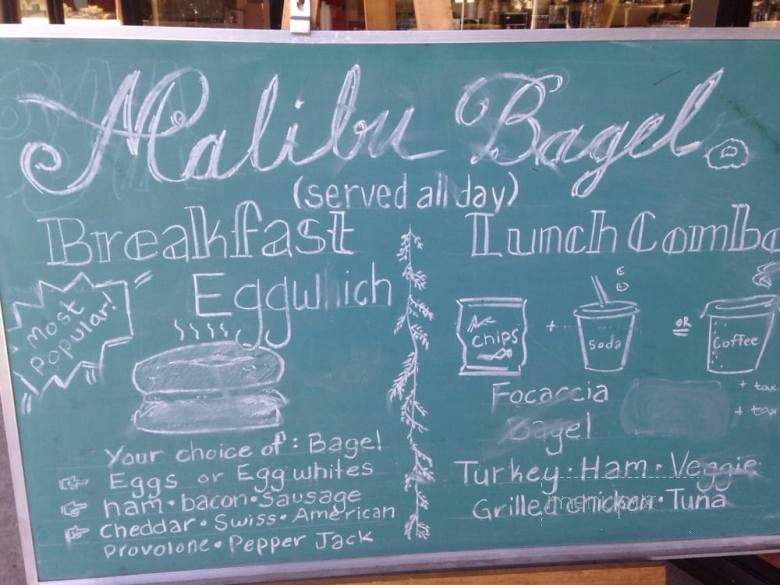 Malibu Bagel
(served all day)
Breakfast
Eggwich
Most
Popular!
Your choice of: Bagel
Eggs or Egg whites
ham • bacon • Sausage
Cheddar • Swiss • American
Provolone • Pepper Jack
Lunch Combo
chips + soda OR Coffee
+ tax
+ tax
Focaccia
Bagel
Turkey • Ham • Veggie
Grilled chicken • Tuna